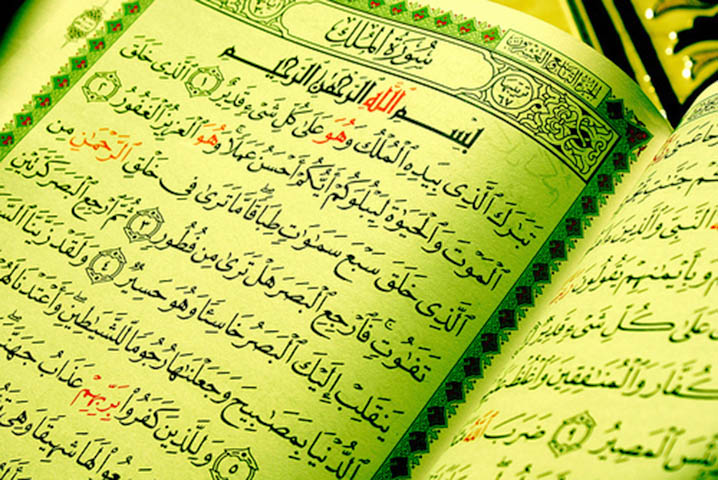 الجزء التاسع والعشرون
سُورَةُ المُلْكِ
بِسْمِ اللَّهِ الرَّحْمَٰنِ الرَّحِيمِ
تَبَٰرَكَ ٱلَّذِى بِيَدِهِ ٱلْمُلْكُ وَهُوَ عَلَىٰ كُلِّ شَىْءٍ قَدِيرٌ ١ ٱلَّذِى خَلَقَ
ٱلْمَوْتَ وَٱلْحَيَوٰةَ لِيَبْلُوَكُمْ أَيُّكُمْ أَحْسَنُ عَمَلًا وَهُوَ ٱلْعَزِيزُ ٱلْغَفُورُ ٢
ٱلَّذِى خَلَقَ سَبْعَ سَمَٰوَٰتٍ طِبَاقًا مَّا تَرَىٰ فِى خَلْقِ ٱلرَّحْمَٰنِ مِن
تَفَٰوُتٍ فَٱرْجِعِ ٱلْبَصَرَ هَلْ تَرَىٰ مِن فُطُورٍ ٣ ثُمَّ ٱرْجِعِ ٱلْبَصَرَ كَرَّتَيْنِ
يَنقَلِبْ إِلَيْكَ ٱلْبَصَرُ خَاسِئًا وَهُوَ حَسِيرٌ ٤ وَلَقَدْ زَيَّنَّا
ٱلدُّنْيَا بِمَصَٰبِيحَ وَجَعَلْنَٰهَا رُجُومًا لِّلشَّيَٰطِينِ وَأَعْتَدْنَا لَهُمْ
٥ وَلِلَّذِينَ كَفَرُوا۟ بِرَبِّهِمْ عَذَابُ جَهَنَّمَ
لَهَا شَهِيقًا وَهِىَ
ٱلنَّبِىَّ وَٱلَّذِينَ
وَبِأَيْمَٰنِهِمْ يَقُولُونَ
عَلَىٰ كُلِّ شَىْءٍ قَدِيرٌ
وَٱلْمُنَٰفِقِينَ وَٱغْلُظْ
ٱلْمَصِيرُ ٩ ضَرَبَ ٱللَّهُ